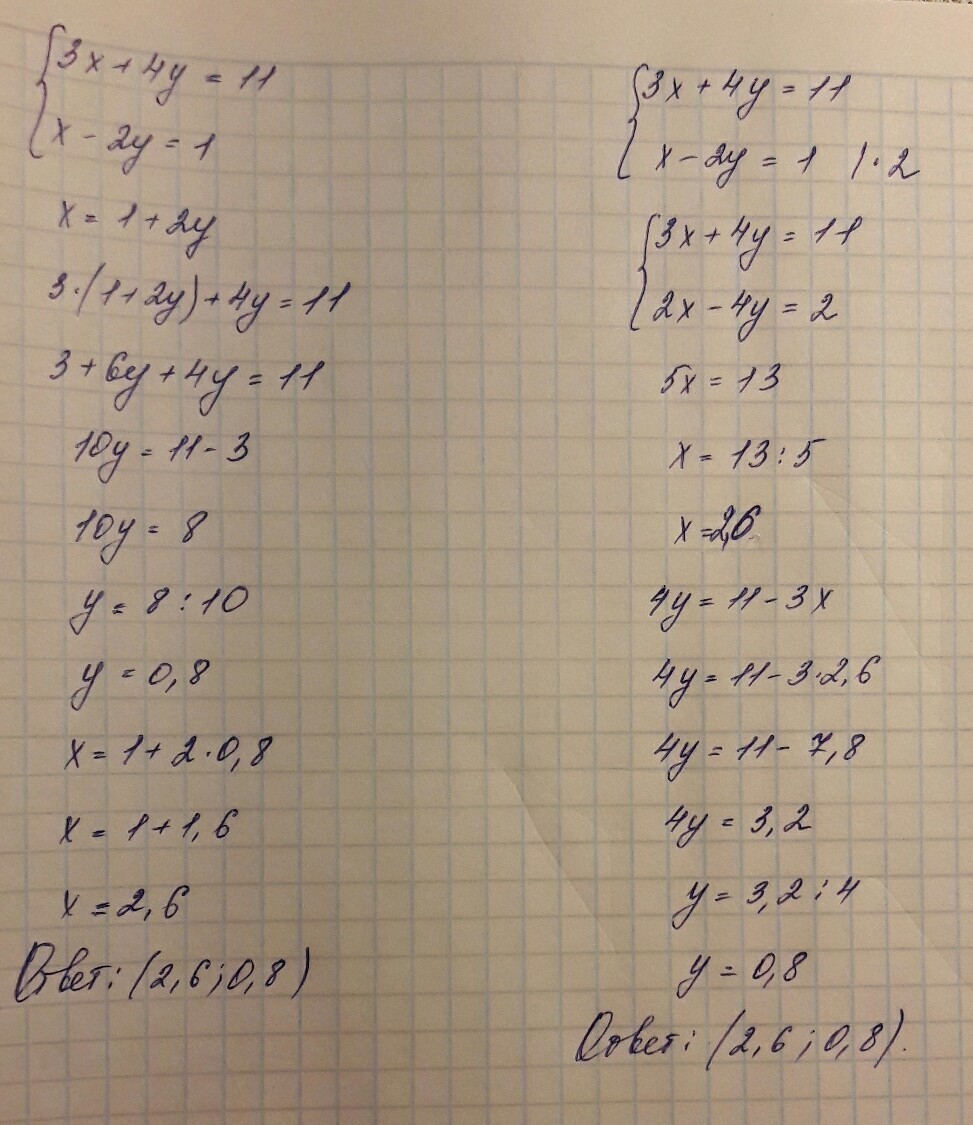 3x + 4y = 11
x - 2y = 1
x = 1 + 2y
3·(1+2y)+4y=11
3+6y+4y=11
10y = 11-3
10y = 8
y = 8:10
y = 0,8
x = 1+2·0,8
x = 1+1,6
x = 2,6
Ответ: (2,6;0,8)
3x + 4y = 11
x - 2y = 1 |·2
3x + 4y = 11
2x - 4y = 2
5x = 13
x = 13:5
x = 2,6
4y = 11-3x
4y = 11-3·2,6
4y = 11-7,8
4y = 3,2
y = 3,2:4
y = 0,8
Ответ: (2,6;0,8).